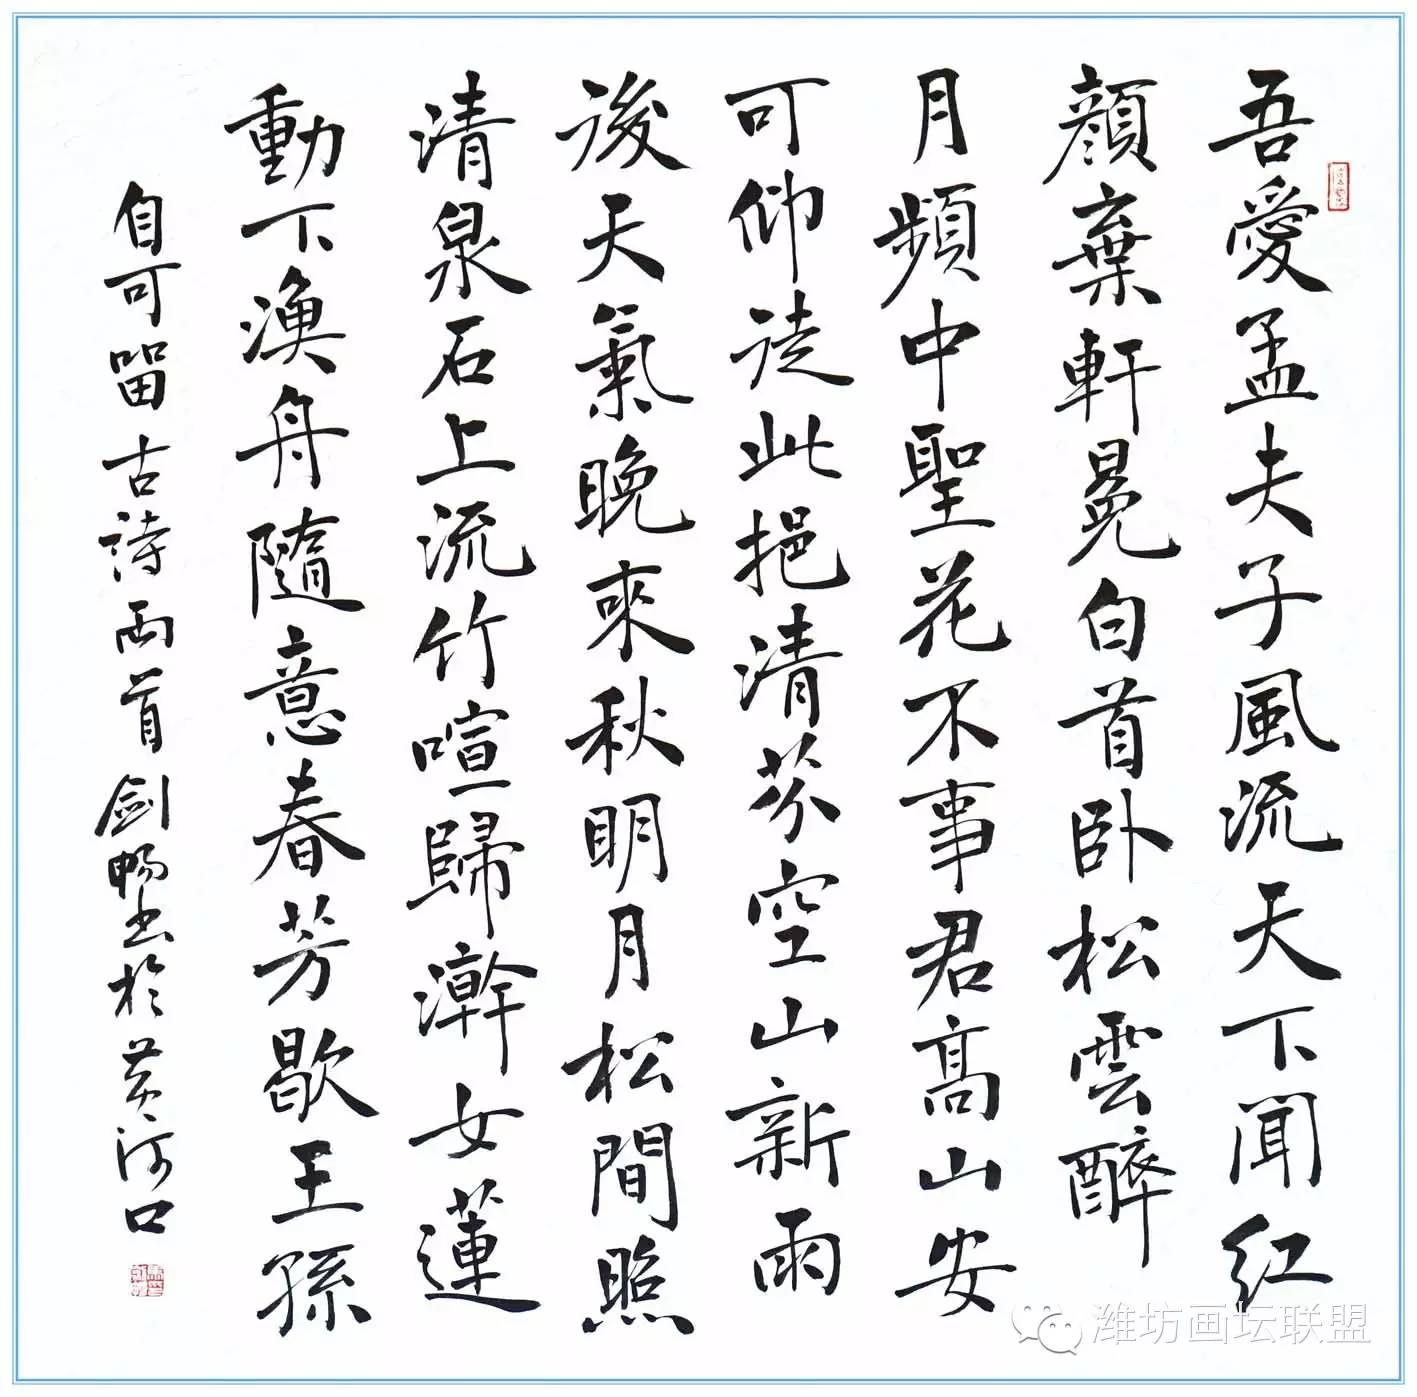 吾愛孟夫子風流天下聞紅
顏棄軒冕白首卧松雲醉
月頻中聖花不事君高山安
可仰徒此挹清芬空山新雨
後天氣晚來秋明月松間照
清泉石上流竹喧歸澣女蓮
動下漁舟隨意春芳歇王孫
自可留古詩兩首劍畅书於黄河口
潍坊画坛联盟